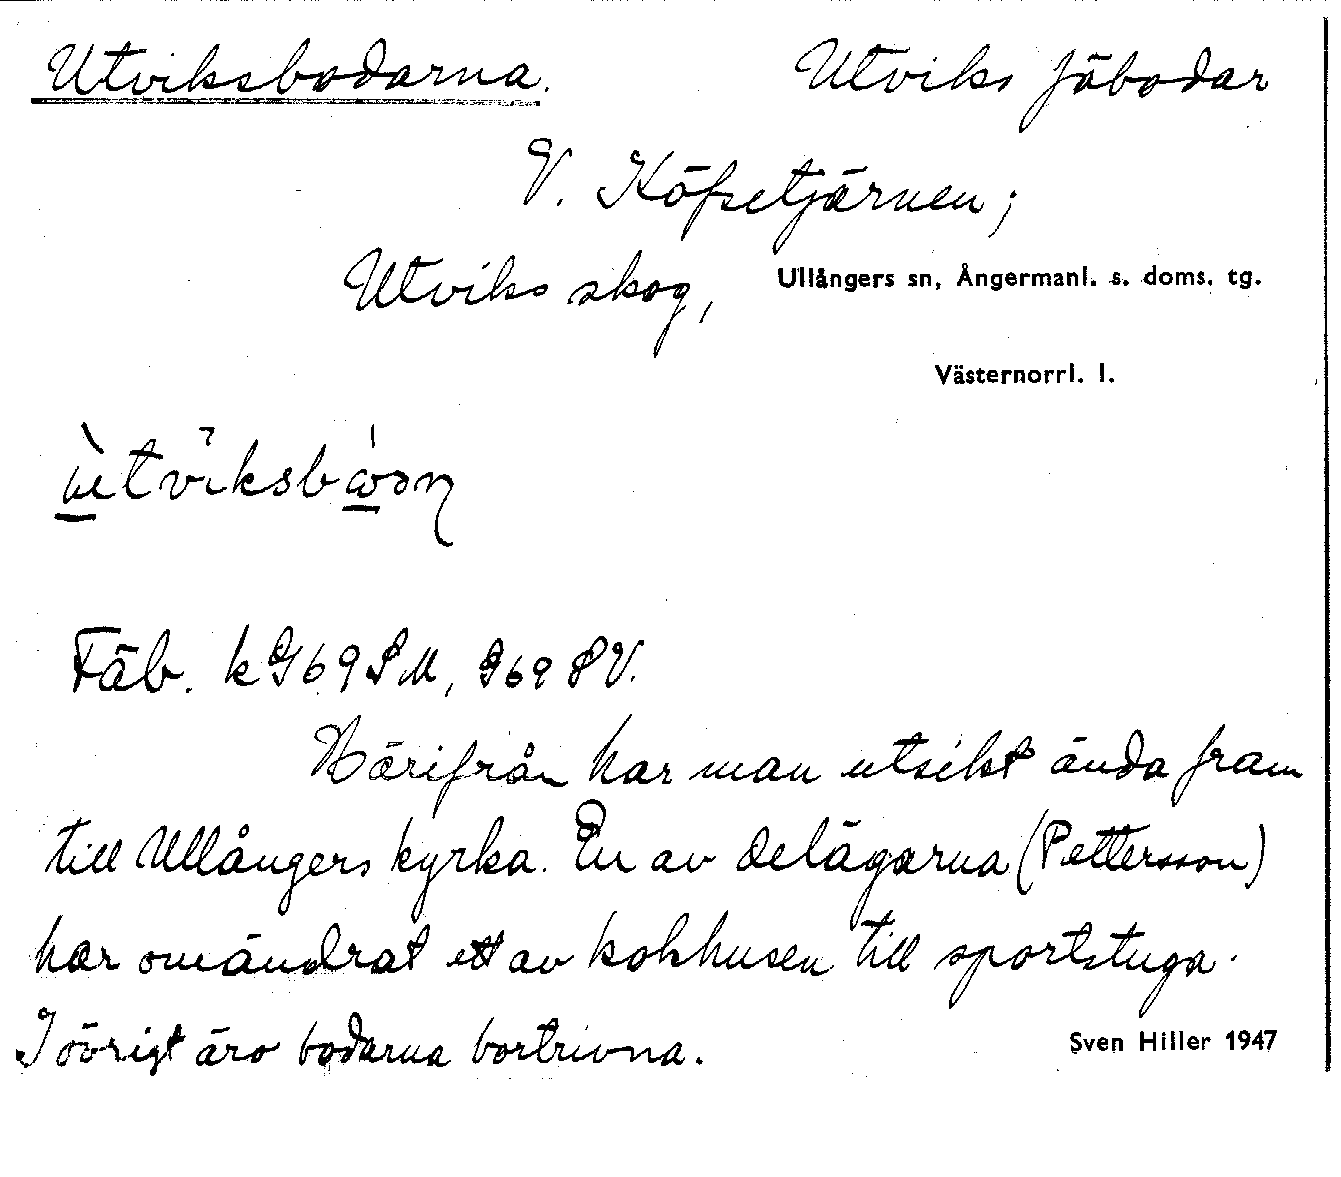 Utviksbodarna. Utviks fäbodar
V. Köpsetjärnen;
Utviks skog, Ullångers sn, Ångermanl. s. doms. tg.
Västernorrl. l.
Fäb. k G69SM, G69SV.
Härifrån har man utsikt ända fram
till Ullångers kyrka. En av delägarna (Pettersson)
har omändrat ett av kokhusen till sportstuga.
I övrigt äro bodarna bortrivna. Sven Hiller 1947